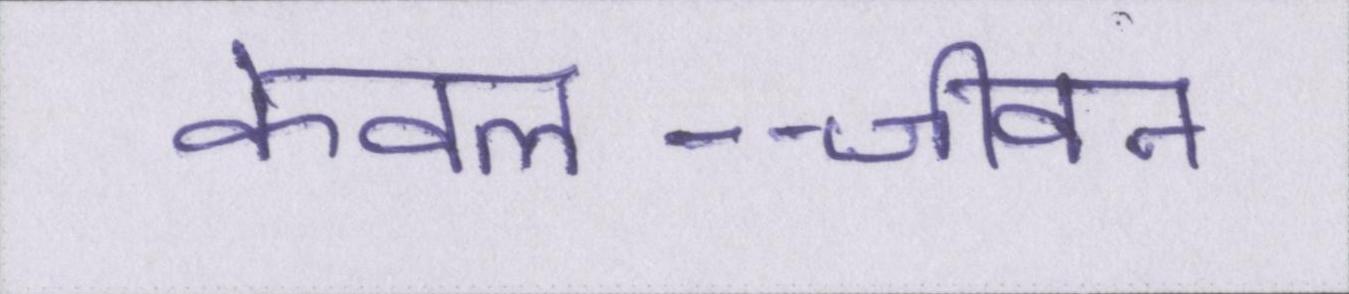 केवल --जीवन